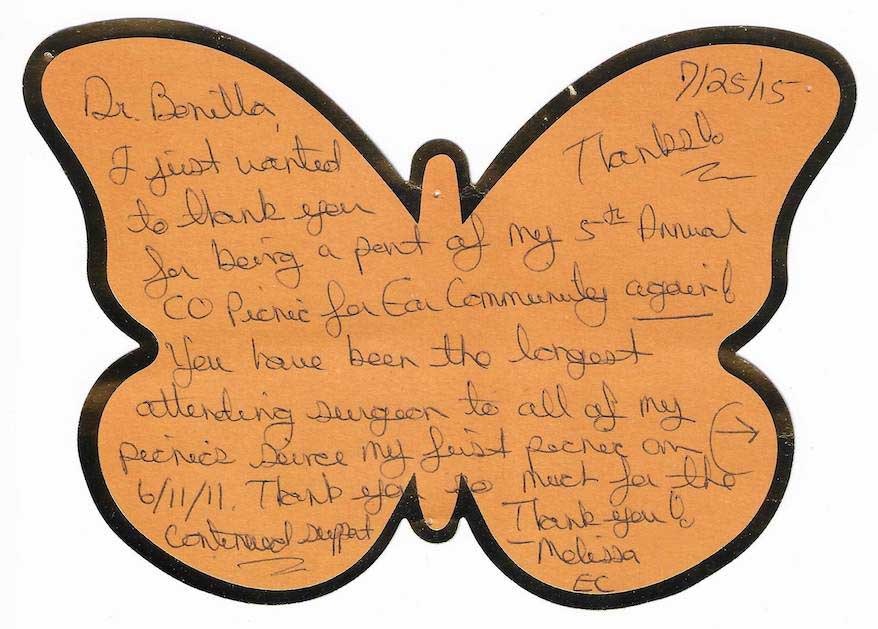 7/25/15
Dr. Bonilla,
Thanks!
I just wanted
to thank you
for being a part of my 5th Annual
CO Picnic for Ear Community again!
You have been the longest
attending surgeon to all of my
picnics since my first picnic on
6/11/11. Thank you so much for the
continued support
Thank you!
-Melissa
EC